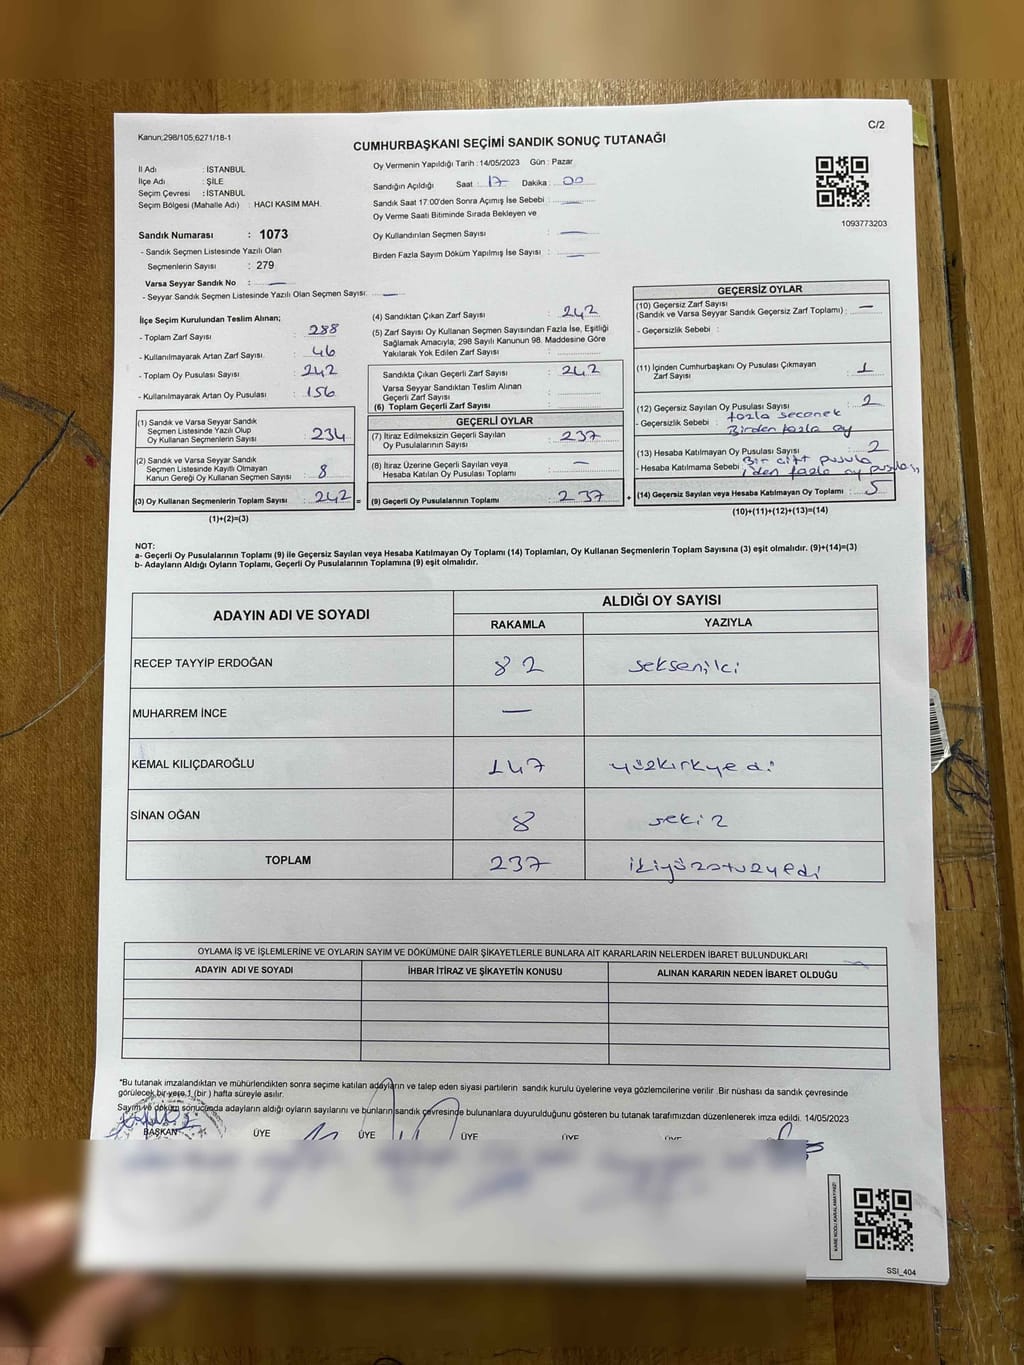 Kanun;298/105;6271/18-1
C/2
CUMHURBAŞKANI SEÇİMİ SANDIK SONUÇ TUTANAĞI
İl Adı : İSTANBUL
İlçe Adı : ŞİLE
Seçim Çevresi : İSTANBUL
Seçim Bölgesi (Mahalle Adı) : HACI KASIM MAH.
Oy Vermenin Yapıldığı Tarih : 14/05/2023 Gün : Pazar
Sandığın Açıldığı Saat : 17 Dakika : 00
Sandık Saat 17:00'den Sonra Açımış İse Sebebi : —
Oy Verme Saati Bitiminde Sırada Bekleyen ve
Oy Kullandırılan Seçmen Sayısı : —
Birden Fazla Sayım Döküm Yapılmış İse Sayısı : —
1093773203
Sandık Numarası : 1073
- Sandık Seçmen Listesinde Yazılı Olan
Seçmenlerin Sayısı : 279
Varsa Seyyar Sandık No : —
- Seyyar Sandık Seçmen Listesinde Yazılı Olan Seçmen Sayısı: —
İlçe Seçim Kurulundan Teslim Alınan;
- Toplam Zarf Sayısı : 288
- Kullanılmayarak Artan Zarf Sayısı : 46
- Toplam Oy Pusulası Sayısı : 242
- Kullanılmayarak Artan Oy Pusulası : 156
(1) Sandık ve Varsa Seyyar Sandık
Seçmen Listesinde Yazılı Olup
Oy Kullanan Seçmenlerin Sayısı : 234
(2) Sandık ve Varsa Seyyar Sandık
Seçmen Listesinde Kayıtlı Olmayan
Kanun Gereği Oy Kullanan Seçmen Sayısı : 8
(3) Oy Kullanan Seçmenlerin Toplam Sayısı : 242 =
(1)+(2)=(3)
(4) Sandıktan Çıkan Zarf Sayısı : 242
(5) Zarf Sayısı Oy Kullanan Seçmen Sayısından Fazla İse, Eşitliği
Sağlamak Amacıyla; 298 Sayılı Kanunun 98. Maddesine Göre
Yakılarak Yok Edilen Zarf Sayısı :
Sandıkta Çıkan Geçerli Zarf Sayısı : 242
Varsa Seyyar Sandıktan Teslim Alınan
Geçerli Zarf Sayısı :
(6) Toplam Geçerli Zarf Sayısı :
GEÇERLİ OYLAR
(7) İtiraz Edilmeksizin Geçerli Sayılan
Oy Pusulalarının Sayısı : 237
(8) İtiraz Üzerine Geçerli Sayılan veya
Hesaba Katılan Oy Pusulası Toplamı : —
(9) Geçerli Oy Pusulalarının Toplamı : 237 +
GEÇERSİZ OYLAR
(10) Geçersiz Zarf Sayısı
(Sandık ve Varsa Seyyar Sandık Geçersiz Zarf Toplamı) : —
- Geçersizlik Sebebi :
(11) İçinden Cumhurbaşkanı Oy Pusulası Çıkmayan
Zarf Sayısı : 1
(12) Geçersiz Sayılan Oy Pusulası Sayısı : 2
- Geçersizlik Sebebi : fazla secenek
Birden fazla oy
(13) Hesaba Katılmayan Oy Pusulası Sayısı : 2
- Hesaba Katılmama Sebebi : Bir çift pusula
1 den fazla oy pusulası
(14) Geçersiz Sayılan veya Hesaba Katılmayan Oy Toplamı : 5
(10)+(11)+(12)+(13)=(14)
NOT:
a- Geçerli Oy Pusulalarının Toplamı (9) ile Geçersiz Sayılan veya Hesaba Katılmayan Oy Toplamı (14) Toplamları, Oy Kullanan Seçmenlerin Toplam Sayısına (3) eşit olmalıdır. (9)+(14)=(3)
b- Adayların Aldığı Oyların Toplamı, Geçerli Oy Pusulalarının Toplamına (9) eşit olmalıdır.
ADAYIN ADI VE SOYADI
ALDIĞI OY SAYISI
RAKAMLA YAZIYLA
RECEP TAYYİP ERDOĞAN 82 sekseniki
MUHARREM İNCE —
KEMAL KILIÇDAROĞLU 147 yüzkırkyedi
SİNAN OĞAN 8 sekiz
TOPLAM 237 ikiyüzotuzyedi
OYLAMA İŞ VE İŞLEMLERİNE VE OYLARIN SAYIM VE DÖKÜMÜNE DAİR ŞİKAYETLERLE BUNLARA AİT KARARLARIN NELERDEN İBARET BULUNDUKLARI
ADAYIN ADI VE SOYADI İHBAR İTİRAZ VE ŞİKAYETİN KONUSU ALINAN KARARIN NEDEN İBARET OLDUĞU
*Bu tutanak imzalandıktan ve mühürlendikten sonra seçime katılan adayların ve talep eden siyasi partilerin sandık kurulu üyelerine veya gözlemcilerine verilir. Bir nüshası da sandık çevresinde
görülecek bir yere 1 (bir ) hafta süreyle asılır.
Sayım ve döküm sonucunda adayların aldığı oyların sayılarını ve bunların sandık çevresinde bulunanlara duyurulduğunu gösteren bu tutanak tarafımızdan düzenlenerek imza edildi. 14/05/2023
BAŞKAN ÜYE ÜYE ÜYE ÜYE ÜYE
KARE KODU KARALAMAYINIZ!
SSİ_404